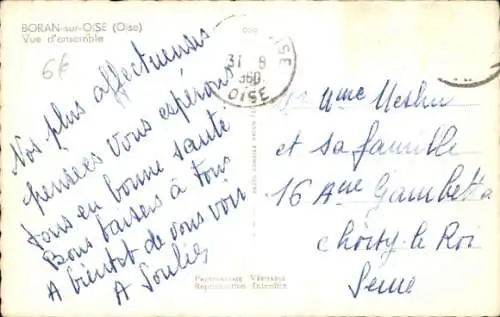 BORAN-sur-OISE (Oise)
Vue d'ensemble
6€
Nos plus affectueuses
pensées Vous espérons
tous en bonne santé
Bons baisers à tous
A bientôt de vous voir
A
31 8
1960
OISE
Mme
et sa famille
16 Ave Gambetta
Choisy le Roi
Seine
Photographie Véritable
Reproduction Interdite